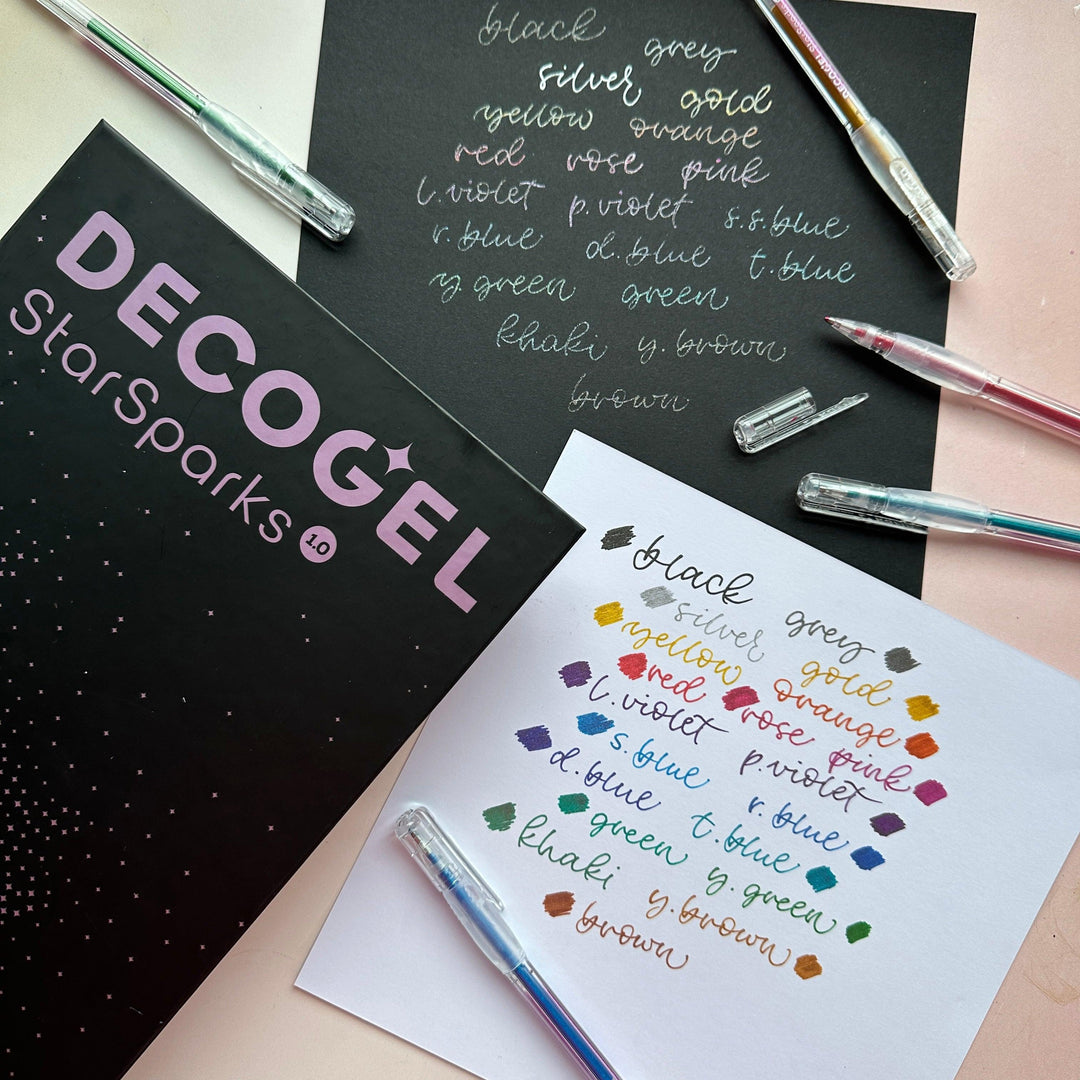 DECOGEL
StarSparks 1.0
black grey
silver gold
yellow orange
red rose pink
l.violet p.violet s.s.blue
r.blue d.blue t.blue
y.green green
khaki y.brown
brown
DECOGEL
black grey
silver gold
yellow orange
red rose pink
l.violet p.violet
s.blue r.blue
d.blue t.blue
green y.green
khaki y.brown
brown